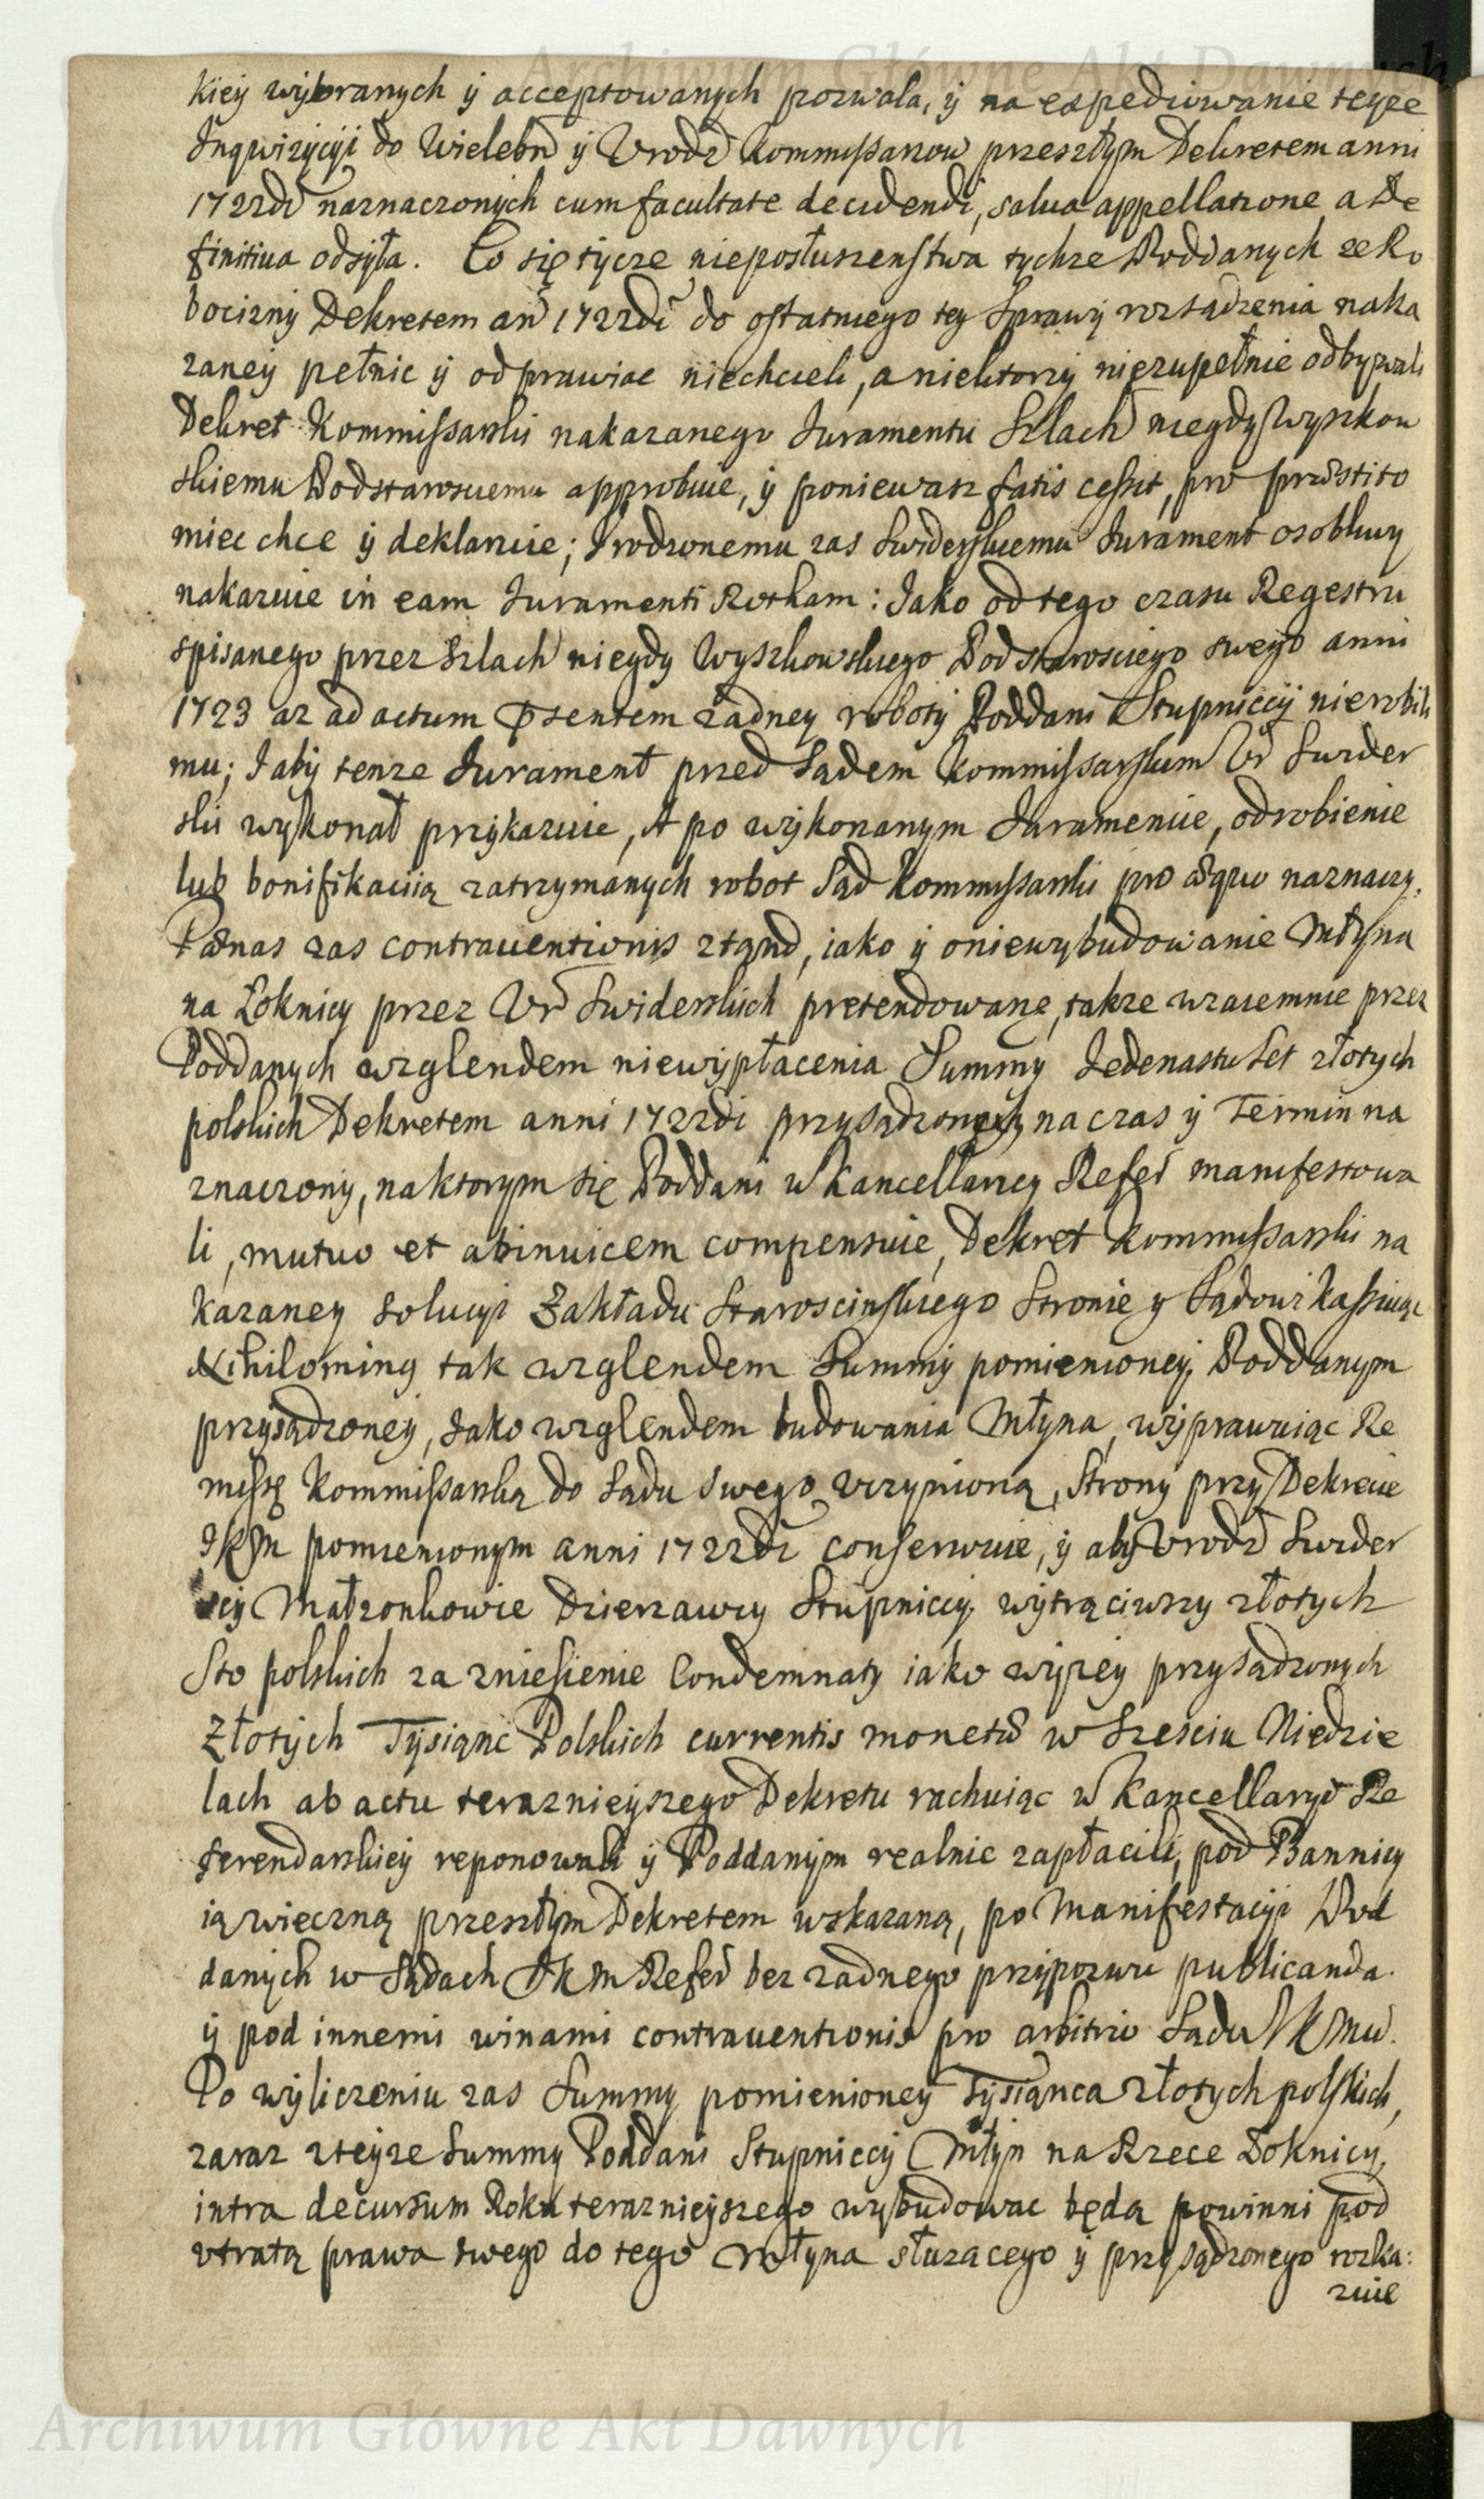 Archiwum Główne Akt Dawnych
kiey wybranych y acceptowanych pozwala, y na expediowanie teyże
Inqwizycyi do Wielebn y Vrodz Kommissarzow przeszłym Dekretem anni
1722di naznaczonych cum facultate decidendi, salva appellatione a De
finitiua odsyła. Co się tycze nieposłuszenstwa tychże Poddanych ze Ro
bocizny Dekretem an 1722di do ostatniego tey Sprawy rozsądzenia naka
zaney pełnic y odprawiac niechcieli, a niektorzy niezupełnie odbywali
Dekret Kommissarski nakazanego Juramentu Szlach niegdy Wyszkow
skiemu Podstarosciemu approbuie, y poniewasz fatis cessit, pro præstito
miec chce y deklaruie; Vrodzonemu zas Swiderskiemu Jurament osobliwy
nakazuie in eam Juramenti Rotham: Jako od tego czasu Regestru
spisanego przez Szlach niegdy Wyszkowskiego Podstarosciego swego anni
1723 az ad actum Psentem żadney roboty Poddani Stupniccy nierobili
mu; J aby tenze Jurament przed Sądem Kommissarskim Vr Swider
ski wykonał przykazuie, A po wykonanym Juramencie, odrobienie
lub bonifikacią zatrzymanych robot Sąd Kommissarski pro æquo naznaczy.
Pænas zas contrauentionis ztąnd, iako y oniewybudowanie Młyna
na Łoknicy przez Vr Swiderskich pretendowane, takze wzaiemnie przez
Poddanych wzglendem niewypłacenia Summy Jedenastu Set złotych
polskich Dekretem anni 1722di przysądzonych na czas y Termin na
znaczony, na ktorym się Poddani w Kancellaryey Refer manifestowa
li, mutuo et abinuicem compensuie, Dekret Kommissarski na
kazaney solucyi Zakładu Staroscinskiego Stronie y Sądowi kassuiąc
Nihiloming tak wzglendem Summy pomienioney Poddanym
przysądzoney, Jako wzglendem budowania Młyna, wyprawuiąc Re
missę Kommissarską do Sądu swego vczynioną, Strony przy Dekrecie
JKM pomienionym anni 1722di conserwuie, y aby Vrodz Swider
scy Małzonkowie Dzierzawcy Stupniccy, wytrąciwszy złotych
Sto polskich za zniesienie Condemnaty iako wyzey przysądzonych
Złotych Tysiąnc Polskich currentis monetæ w Szesciu Niedzie
lach ab actu terazniejszego Dekretu rachuiąc w Kancellaryi Re
ferendarskiey reponowali y Poddanym realnie zapłacili, pod Bannicy
ią wieczną przeszłym Dekretem wskazaną, po Manifestacyi Pod
danych w Sądach JKM Refer bez zadnego przypozwu publicanda.
y pod innemi winami contrauentionis pro arbitrio Sądu JKMci.
Po wyliczeniu zas Summy pomienioney Tysiąnca złotych polskich,
zaraz zteyze Summy Poddani Stupniccy Młyn na Rzece Łoknicy,
intra decursum Roku terazniejszego wybudowac będą powinni pod
vtratą prawa swego do tego Młyna słuzacego y przysądzonego rozka:
zuie
Archiwum Główne Akt Dawnych